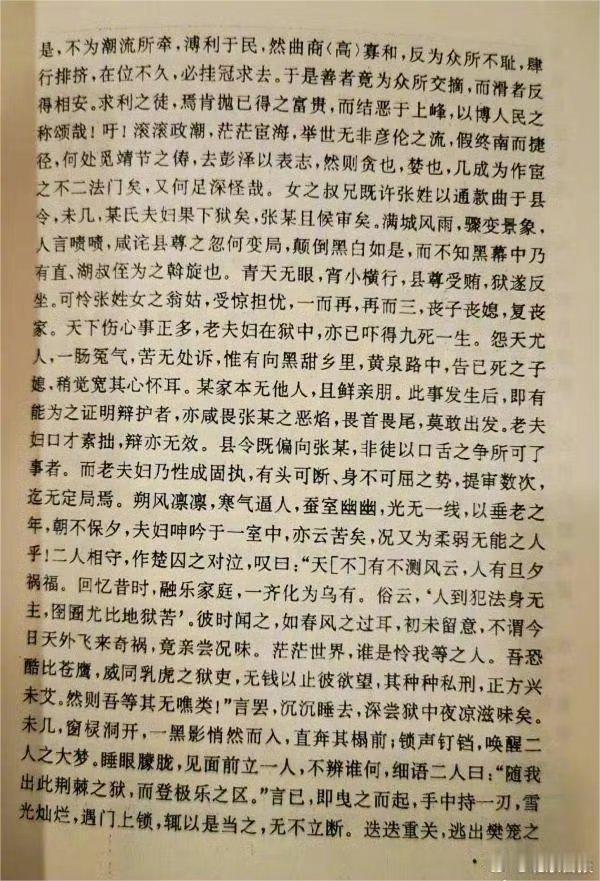 是，不为潮流所牵，溥利于民，然曲商（高）寡和，反为众所不耻，肆
行排挤，在位不久，必挂冠求去。于是善者竟为众所交摘，而滑者反
得相安。求利之徒，焉肯抛已得之富贵，而结恶于上峰，以博人民之
称颂哉！吁！滚滚政潮，茫茫宦海，举世无非彦伦之流，假终南而捷
径，何处觅靖节之俦，去彭泽以表志，然则贪也，婪也，几成为作宦
之不二法门矣，又何足深怪哉。女之叔兄既许张姓以通款曲于县
令，未几，某氏夫妇果下狱矣，张某且候审矣。满城风雨，骤变景象，
人言啧啧，咸诧县尊之忽何变局，颠倒黑白如是，而不知黑幕中乃
有直、湖叔侄为之斡旋也。青天无眼，宵小横行，县尊受贿，狱遂反
坐。可怜张姓女之翁姑，受惊担忧，一而再，再而三，丧子丧媳，复丧
家。天下伤心事正多，老夫妇在狱中，亦已吓得九死一生。怨天尤
人，一肠冤气，苦无处诉，惟有向黑甜乡里，黄泉路中，告已死之子
媳，稍觉宽其心怀耳。某家本无他人，且鲜亲朋。此事发生后，即有
能为之证明辩护者，亦咸畏张某之恶焰，畏首畏尾，莫敢出发。老夫
妇口才素拙，辩亦无效。县令既偏向张某，非徒以口舌之争所可了
事者。而老夫妇乃性成固执，有头可断、身不可屈之势，提审数次，
迄无定局焉。朔风凛凛，寒气逼人，蚕室幽幽，光无一线，以垂老之
年，朝不保夕，夫妇呻吟于一室中，亦云苦矣，况又为柔弱无能之人
乎！二人相守，作楚囚之对泣，叹曰：“天［不］有不测风云，人有旦夕
祸福。回忆昔时，融乐家庭，一齐化为乌有。俗云，‘人到犯法身无
主，囹圄尤比地狱苦’。彼时闻之，如春风之过耳，初未留意，不谓今
日天外飞来奇祸，竟亲尝况味。茫茫世界，谁是怜我等之人。吾恐
酷比苍鹰，威同乳虎之狱吏，无钱以止彼欲望，其种种私刑，正方兴
未艾。然则吾等其无噍类！”言罢，沉沉睡去，深尝狱中夜凉滋味矣。
未几，窗棂洞开，一黑影悄然而入，直奔其榻前；锁声钉铛，唤醒二
人之大梦。睡眼朦胧，见面前立一人，不辨谁何，细语二人曰：“随我
出此荆棘之狱，而登极乐之区。”言已，即曳之而起，手中持一刃，雪
光灿烂，遇门上锁，辄以是当之，无不立断。迭迭重关，逃出樊笼之